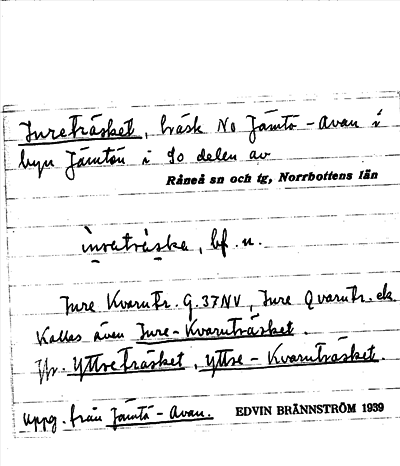 Inreträsket, träsk No Jämtö-Avan i
byn Jämtön i So delen av
Råneå sn och tg, Norrbottens län
inratraska, bf. n.
Inre Kvarntr. G. 37NV, Inre Qvarntr. ek.
Kallas även Inre-Kvarnträsket.
Jfr. Yttreträsket, Yttre-Kvarnträsket.
Uppg. från Jämtö-Avan. EDVIN BRÄNNSTRÖM 1939